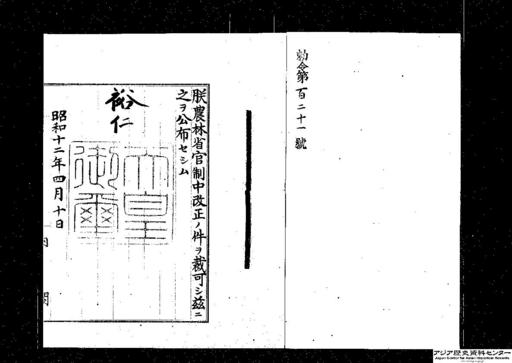 勅令第百二十一號
朕農林省官制中改正ノ件ヲ裁可シ茲ニ
之ヲ公布セシム
裕仁
天皇御璽
昭和十二年四月十日
アジア歴史資料センター
Japan Center for Asian Historical Records